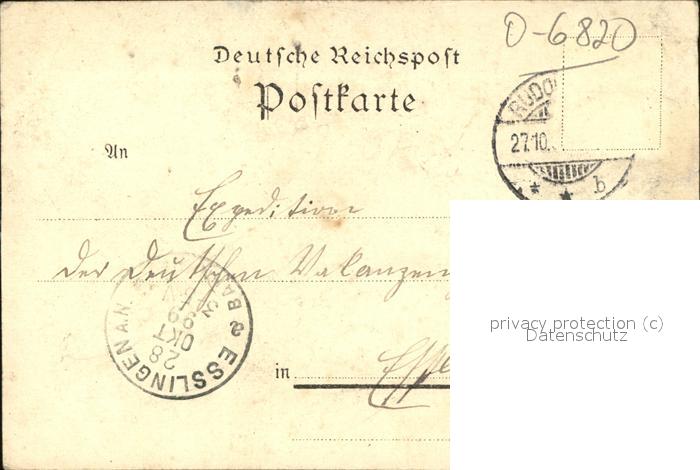 O-6820
Deutsche Reichspost
Postkarte
RUDO
27.10.
* * b
An
Expedition
der Deutschen Vakanzen
ESSLINGEN A.N.
28
OKT
in Essl
privacy protection (c)
Datenschutz